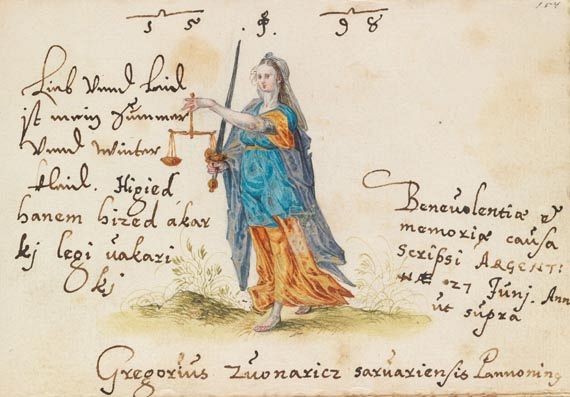 154
15 98
Lieb vnnd Laid
ist mein Summer
vnnd winter
klaid. Higied
hanem hized akar
kj legi uakari
Okj
Beneuolentiæ et
memoriæ causa
scripsi ARGENTI
NÆ 27 Junj. Ann
ut supra
Gregorius Zuonaricz saruariensis Pannonius